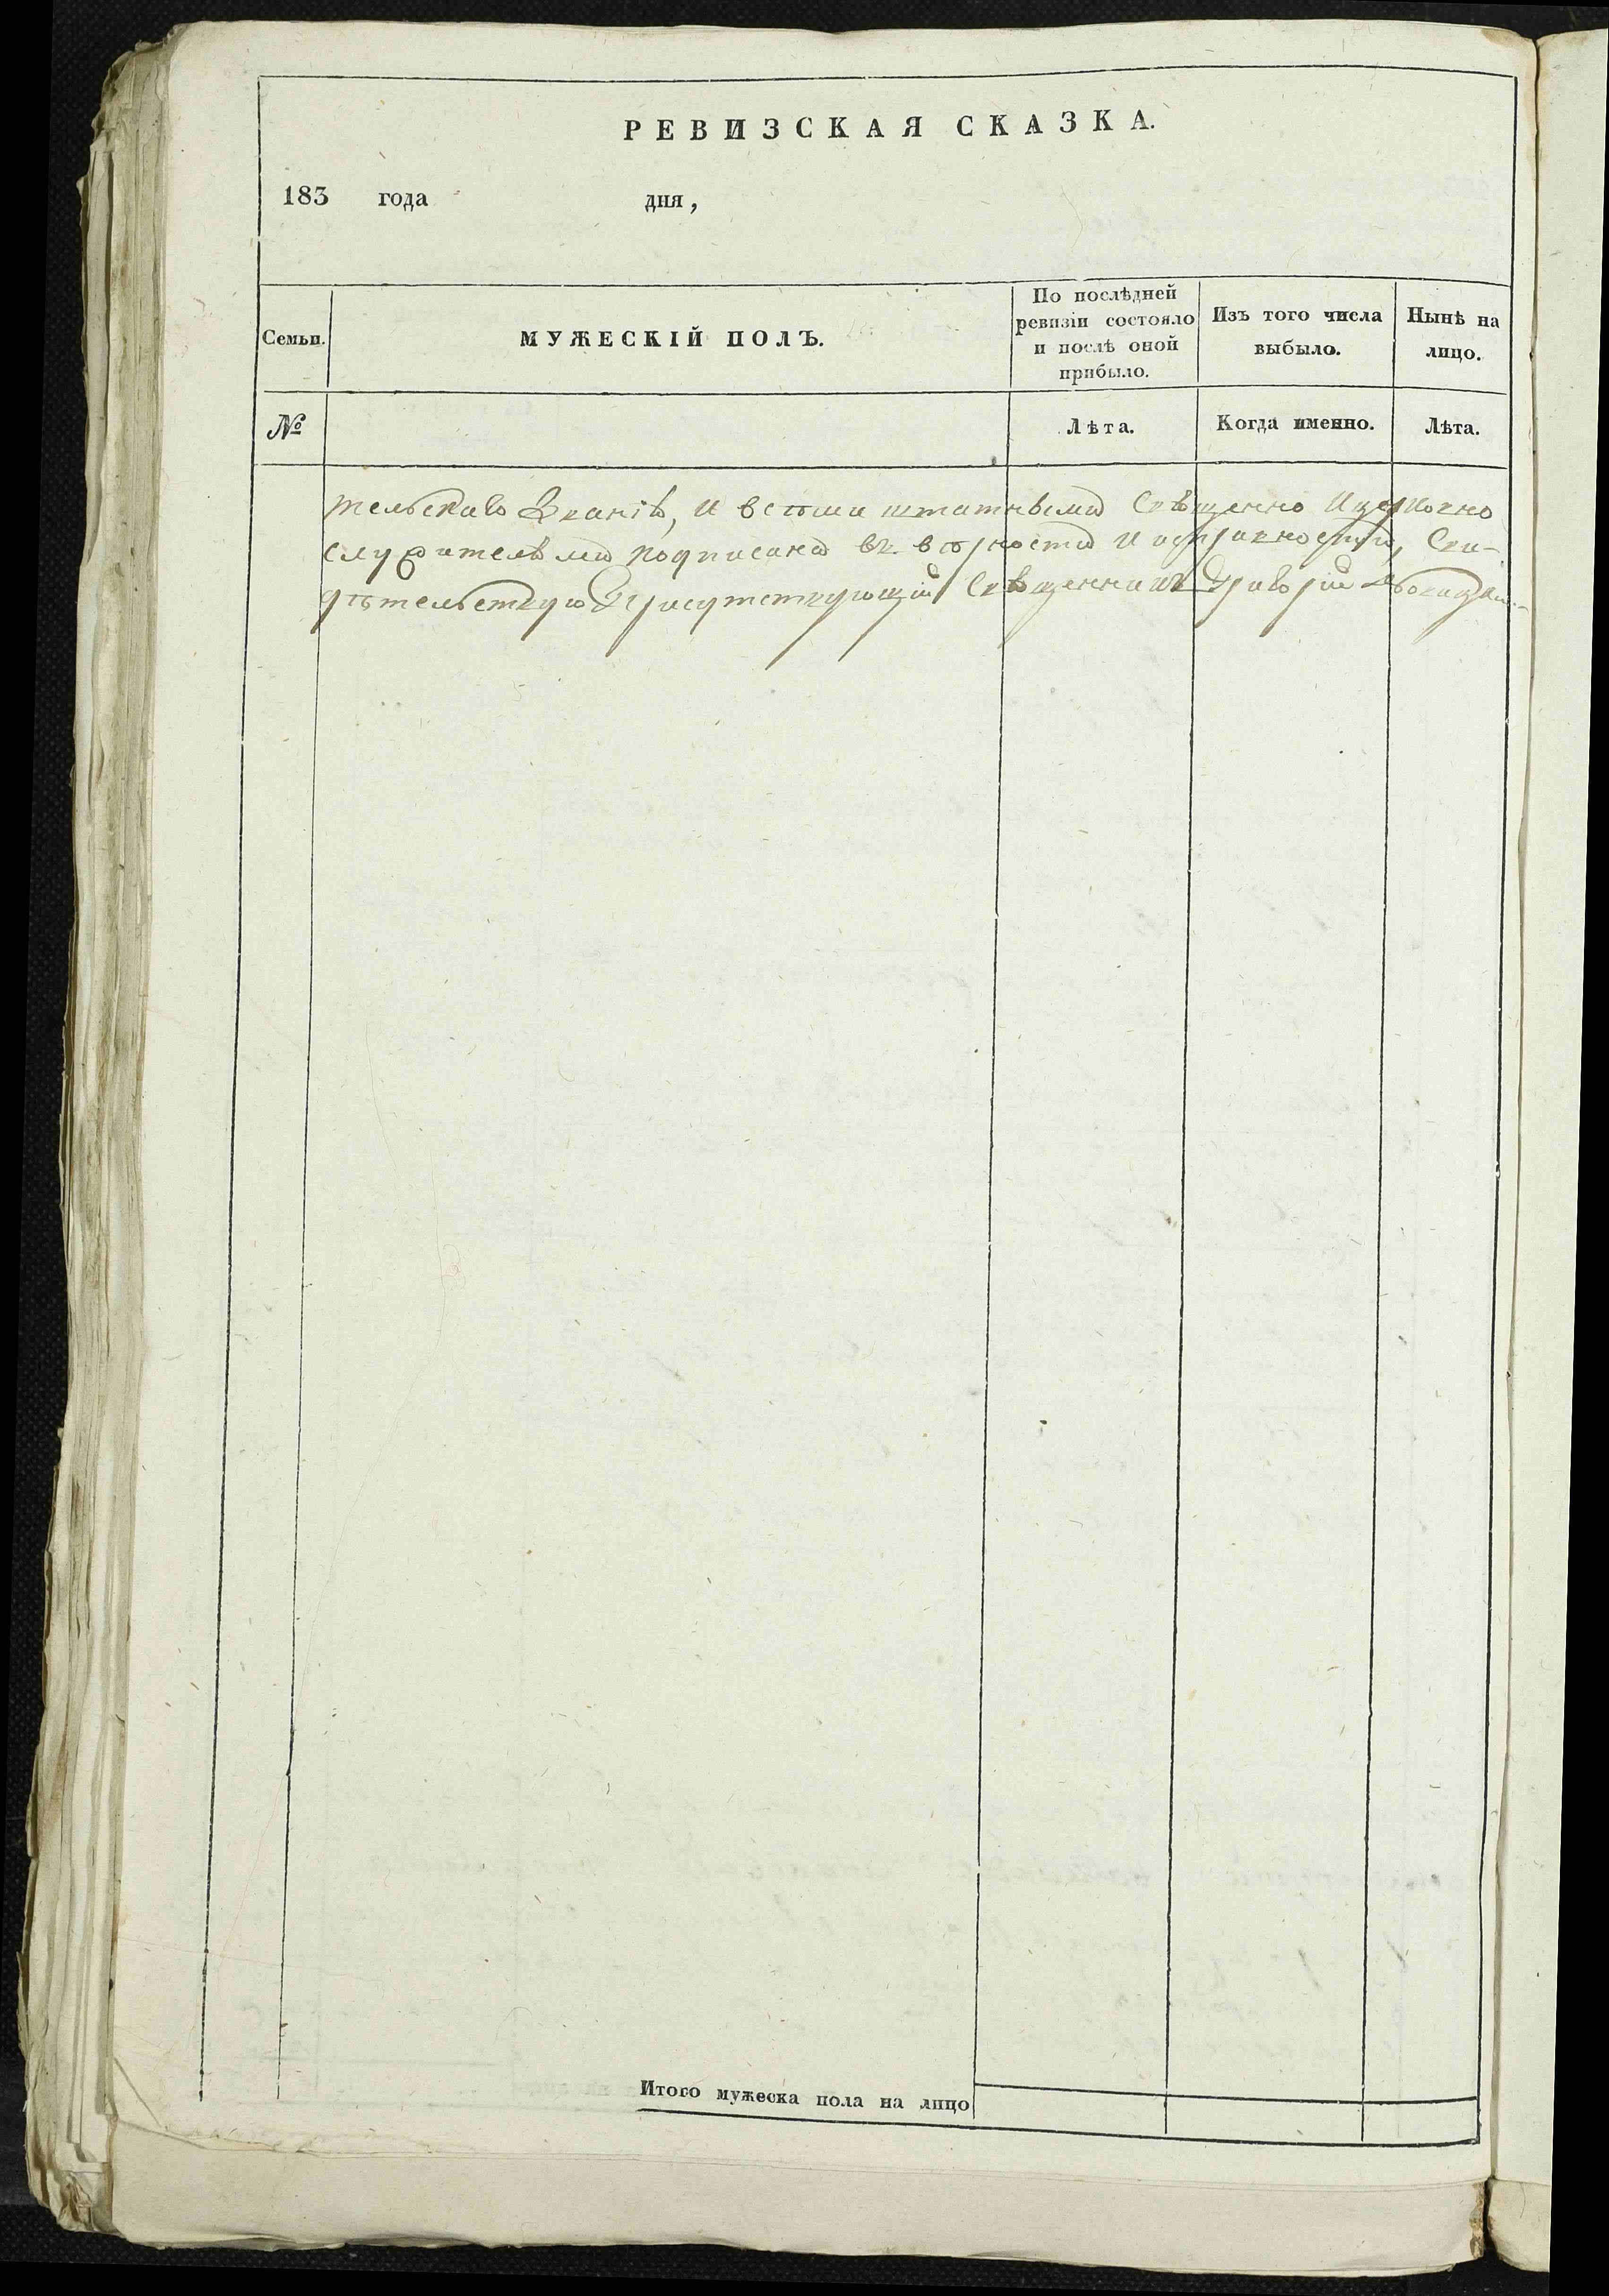 РЕВИЗСКАЯ СКАЗКА.
183 года дня,
Семьи.
МУЖЕСКІЙ ПОЛЪ.
По послѣдней
ревизіи состояло
и послѣ оной
прибыло.
Изъ того числа
выбыло.
Нынѣ на
лицо.
№
Лѣта.
Когда именно.
Лѣта.
тельскаго званія, и всѣми штатными Священно и церковно
служителями подписана въ вѣрности и исправности, Сви-
дѣтельствую Присутствующій Священникъ Григорій
Итого мужеска пола на лицо